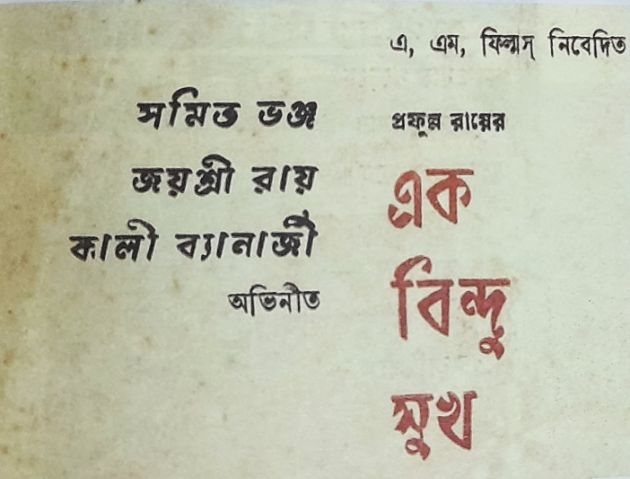 এ, এম, ফিল্মস্ নিবেদিত
সমিত ভঞ্জ
জয়শ্রী রায়
কালী ব্যানার্জী
অভিনীত
প্রফুল্ল রায়ের
এক
বিন্দু
সুখ